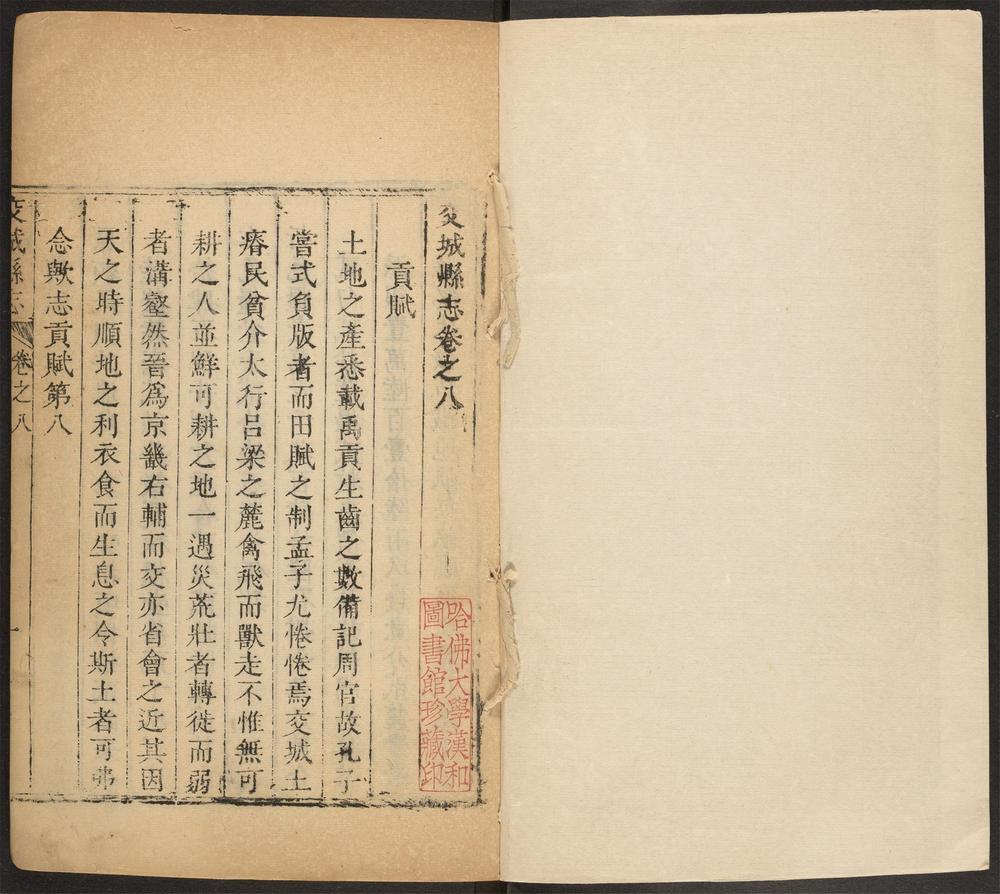 交城縣志卷之八
貢賦
土地之產悉載禹貢生齒之數備記周官故孔子
嘗式負版者而田賦之制孟子尤惓惓焉交城土
瘠民貧介太行呂梁之麓禽飛而獸走不惟無可
耕之人並鮮可耕之地一遇災荒壯者轉徙而弱
者溝壑然晉爲京畿右輔而交亦省會之近其因
天之時順地之利衣食而生息之令斯土者可弗
念歟志貢賦第八
交城縣志
卷之八
一
哈佛大學漢和
圖書館珍藏印